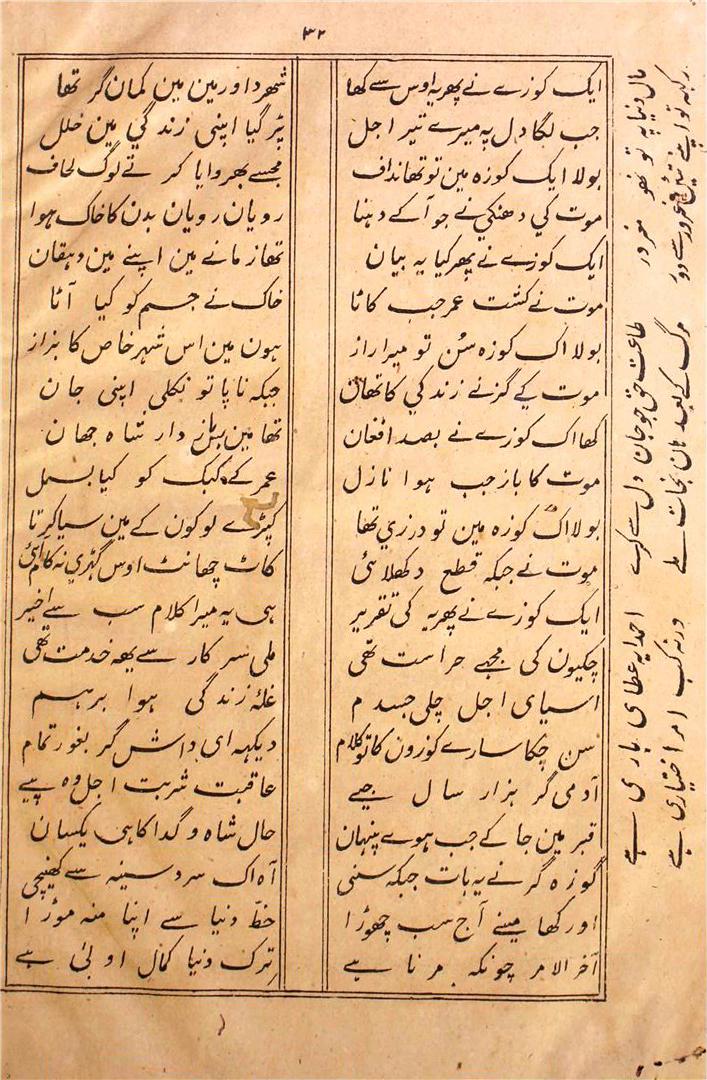 ۳۲
ایک کوزے نے پھر یہ اوس سے کھا
شھر داور مین مین کمان گر تھا
جب لگا دل پہ میرے تیر اجل
پڑ گیا اپنی زندگي مین خلل
بولا ایک کوزہ مین تو تھا نداف
مجسے بھروایا کرتے لوگ لحاف
موت کي دھنکي نے جو آ کے دھنا
رویان رویان بدن کا خاک ہوا
ایک کوزے نے پھر کیا یہ بیان
تھا زمانے مین اپنے مین دہقان
موت نے کشت عمر جب کاٹا
خاک نے جسم کو کیا آٹا
بولا اک کوزہ سُن تو میرا راز
ہون مین اس شہر خاص کا بزاز
موت کے گز نے زندگي کا تھان
جبکہ ناپا تو نکلی اپنی جان
کھا اک کوزے نے بصد افغان
تھا مین باز دار شاہ جھان
موت کا باز جب ہوا نازل
عمر کے کبک کو کیا بسمل
بولا اک کوزہ مین تو درزي تھا
کپڑے لوکون کے مین سیا کرتا
موت نے جبکہ قطع دکھلائی
کاٹ چھانٹ اوس گھڑي نہ کام آئی
ایک کوزے نے پھر یہ کی تقریر
ہی یہ میرا کلام سب سے اخیر
چکیون کی مجھے حراست تھی
ملی سرکار سے یھہ خدمت تھی
اسیای اجل چلی جسدم
غلۂ زندگی ہوا برہم
سن چکا سارے کوزون کا تو کلام
دیکہہ ای داش گر بغور تمام
آدمی گر ہزار سال جیے
عاقبت شربت اجل وہ پیے
قبر مین جا کے جب ہوے پنہان
حال شاہ و گدا کا ہی یکسان
کوزہ گر نے یہ بات جبکہ سنی
آہ اک سرد سینہ سے کھینچی
اور کھا مینے آج سب چھوڑا
حظّ دنیا سے اپنا منہ موڑا
آخر الامر چونکہ مرنا ہے
ترک دنیا کمال اولیٰ ہے
مال دنیا پہ تو نھو مغرور
رکہہ تو اپنے تئین غرور سے دور
طاعت حق جو جان و دل سے کرے
مرگ کے بعد ہان نجات ملے
احدا یہ عطای باری ہے
ورنہ کب امر اختیاری ہے